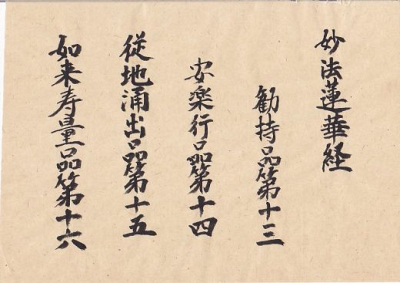 妙法蓮華経
勧持品第十三
安楽行品第十四
従地涌出品第十五
如来寿量品第十六